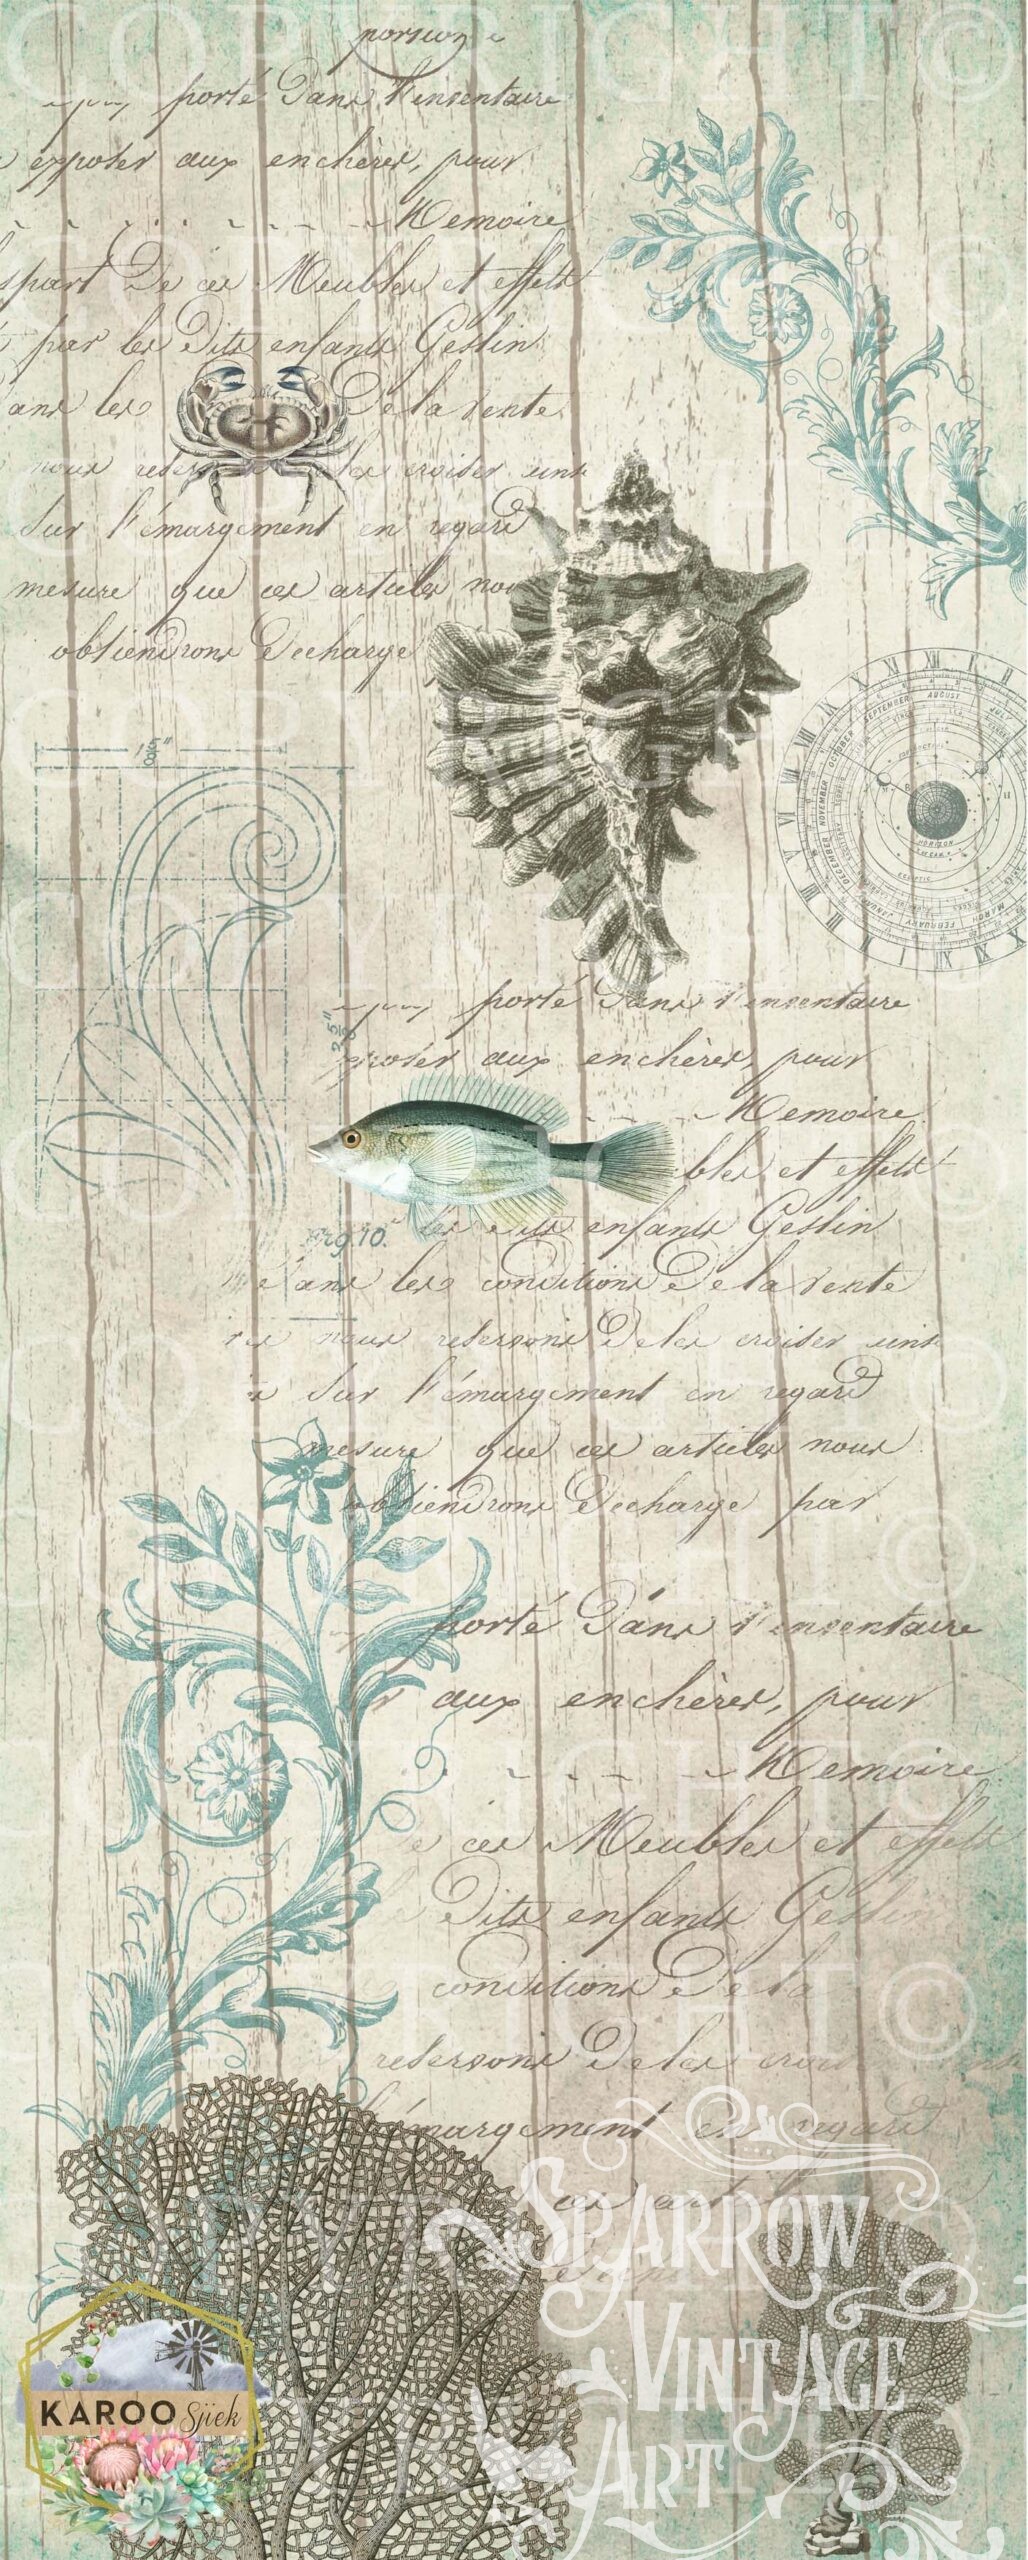 COPYRIGHT©
porté Dans l'inventaire
exposer aux enchères, pour
Memoire
De ces Meubles et effets
par les Dits enfants Geslin
ans les De la vente
nous les croiser
Sur l'émargement en regard
mesure que ces articles nou
obtiendrons Décharge
COPYRIGHT
1 5/8"
XII
SEPTEMBER AUGUST JULY
OCTOBER
NOVEMBER
DECEMBER
HORIZON
OCEAN
JANUARY FEBRUARY MARCH
porté Dans l'inventaire
aux enchères, pour
Memoire
bles et effets
Fig. 10. les Dits enfants Geslin
Dans les conditions De la vente
nous reservons De les croiser
Sur l'émargement en regard
mesure que ces articles nous
obtiendrons Décharge par
porté Dans l'inventaire
aux enchères, pour
Memoire
ces Meubles et effets
Dits enfants Geslin
conditions De la
reservons De les
émargement en regard
SPARROW
VINTAGE
ART
KAROO Sjiek